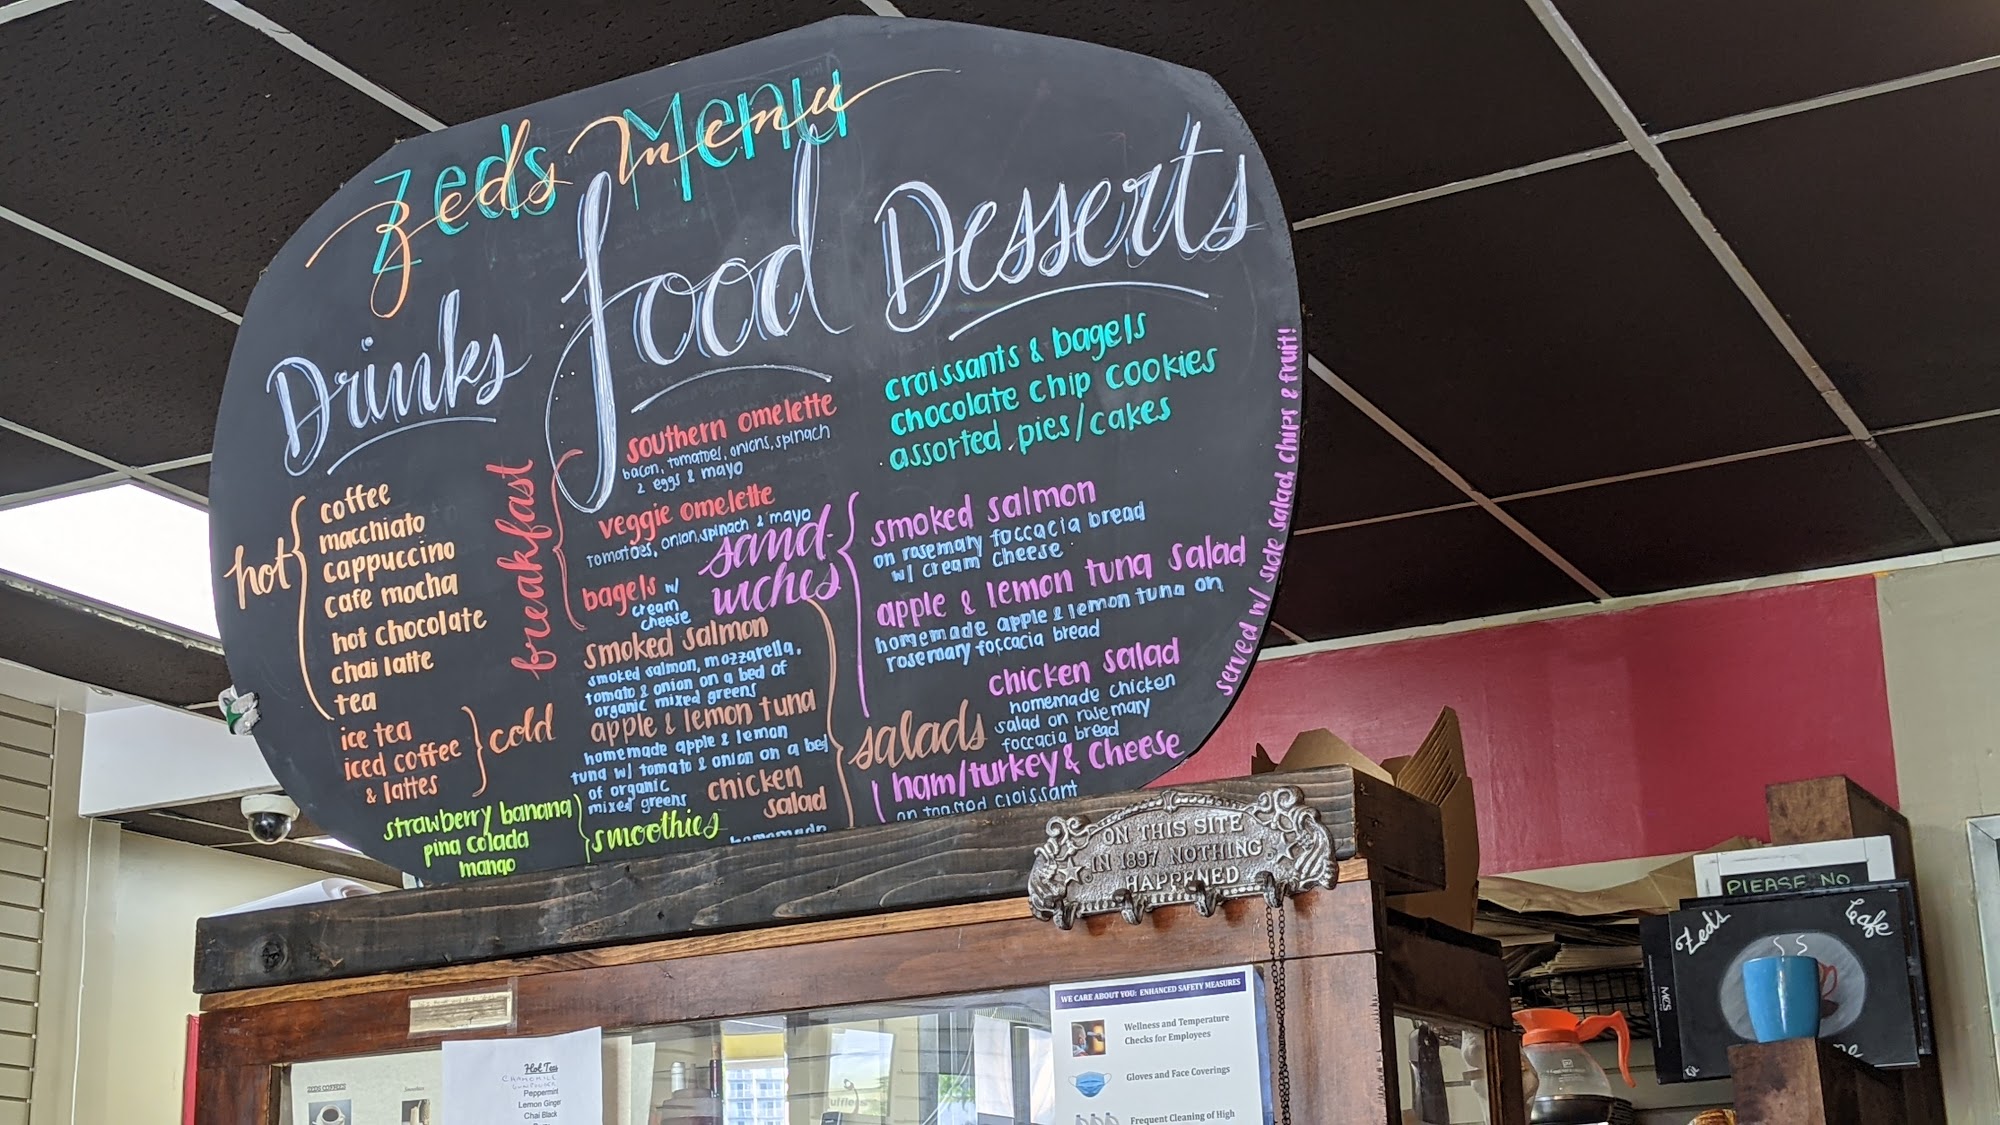 Zeds Menu
Zeds Menu
Drinks
hot
coffee
macchiato
cappuccino
cafe mocha
hot chocolate
chai latte
tea
ice tea
iced coffee
& lattes
cold
strawberry banana
pina colada
mango
smoothies
food
breakfast
southern omelette
bacon, tomatoes, onions, spinach
2 eggs & mayo
veggie omelette
tomatoes, onion, spinach & mayo
bagels w/
cream
cheese
smoked salmon
smoked salmon, mozzarella,
tomato & onion on a bed of
organic mixed greens
apple & lemon tuna
homemade apple & lemon
tuna w/ tomato & onion on a bed
of organic
mixed greens
chicken
salad
homemade
salads
Desserts
croissants & bagels
chocolate chip cookies
assorted pies/cakes
sand-
wiches
smoked salmon
on rosemary foccacia bread
w/ cream cheese
apple & lemon tuna salad
homemade apple & lemon tuna on
rosemary foccacia bread
chicken salad
homemade chicken
salad on rosemary
foccacia bread
ham/turkey & cheese
on toasted croissant
served w/ side salad, chips & fruit!
ON THIS SITE
IN 1897 NOTHING
HAPPENED
PLEASE NO
Zed's Cafe
MCS
WE CARE ABOUT YOU: ENHANCED SAFETY MEASURES
Wellness and Temperature
Checks for Employees
Gloves and Face Coverings
Frequent Cleaning of High
Hot Tea
CHAMOMILE
Peppermint
Lemon Ginger
Chai Black
ZEDS COFFEES